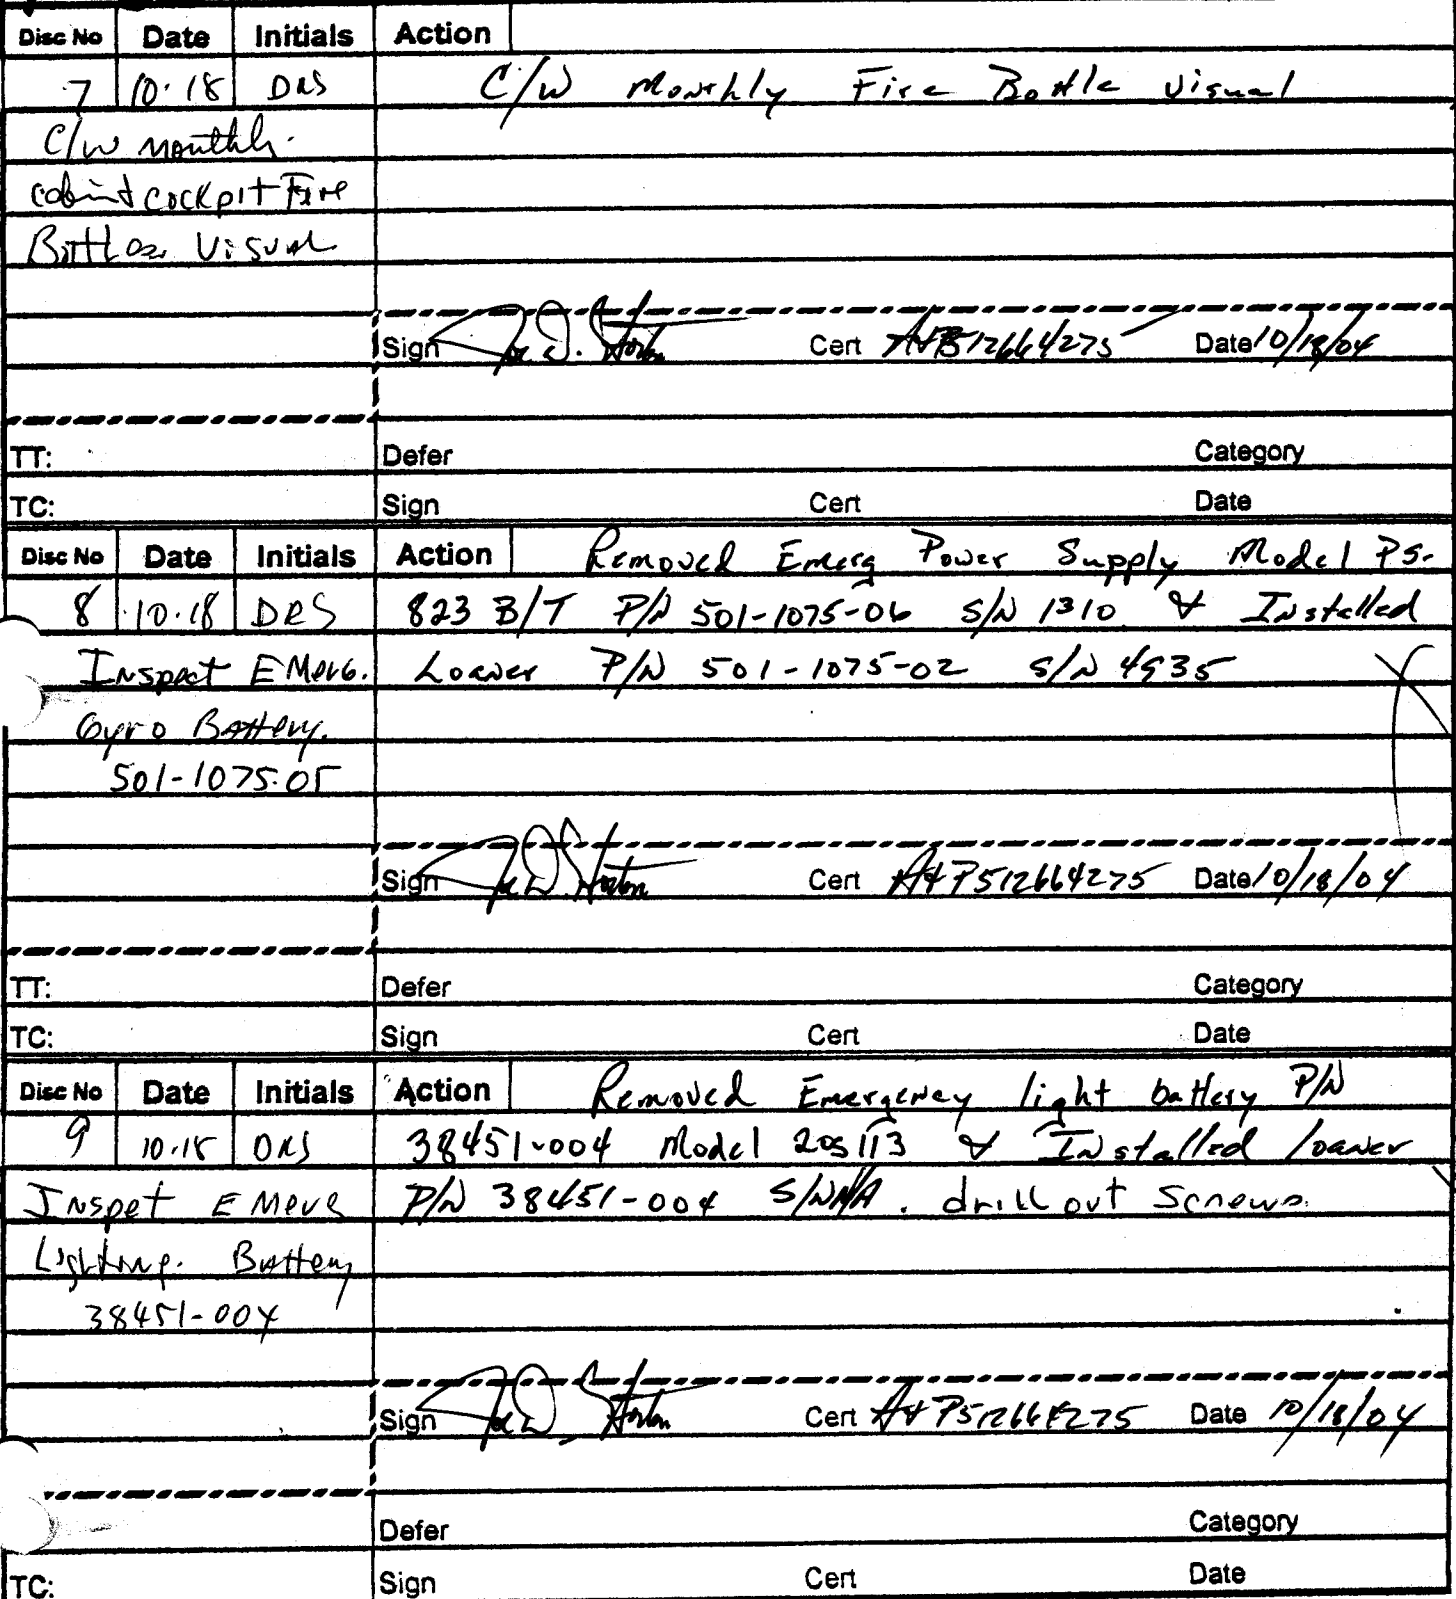 Disc No Date Initials Action
7 10.18 DRS C/W Monthly Fire Bottle Visual
C/W Monthly
cabin & cockpit Fire
Bottles Visual
Sign Cert A&P512664275 Date 10/18/04
TT: Defer Category
TC: Sign Cert Date
Disc No Date Initials Action Removed Emerg Power Supply Model PS-
8 10.18 DRS 823 B/T P/N 501-1075-06 S/N 1310 & Installed
Inspect EMerg. Loaner P/N 501-1075-02 S/N 4935
Gyro Battery.
501-1075-05
Sign Cert A&P512664275 Date 10/18/04
TT: Defer Category
TC: Sign Cert Date
Disc No Date Initials Action Removed Emergency light battery P/N
9 10.18 DRS 38451-004 Model 205113 & Installed loaner
Inspet EMerg P/N 38451-004 S/N N/A. drill out Screws.
Lighting. Battery
38451-004
Sign Cert A&P512664275 Date 10/18/04
Defer Category
TC: Sign Cert Date